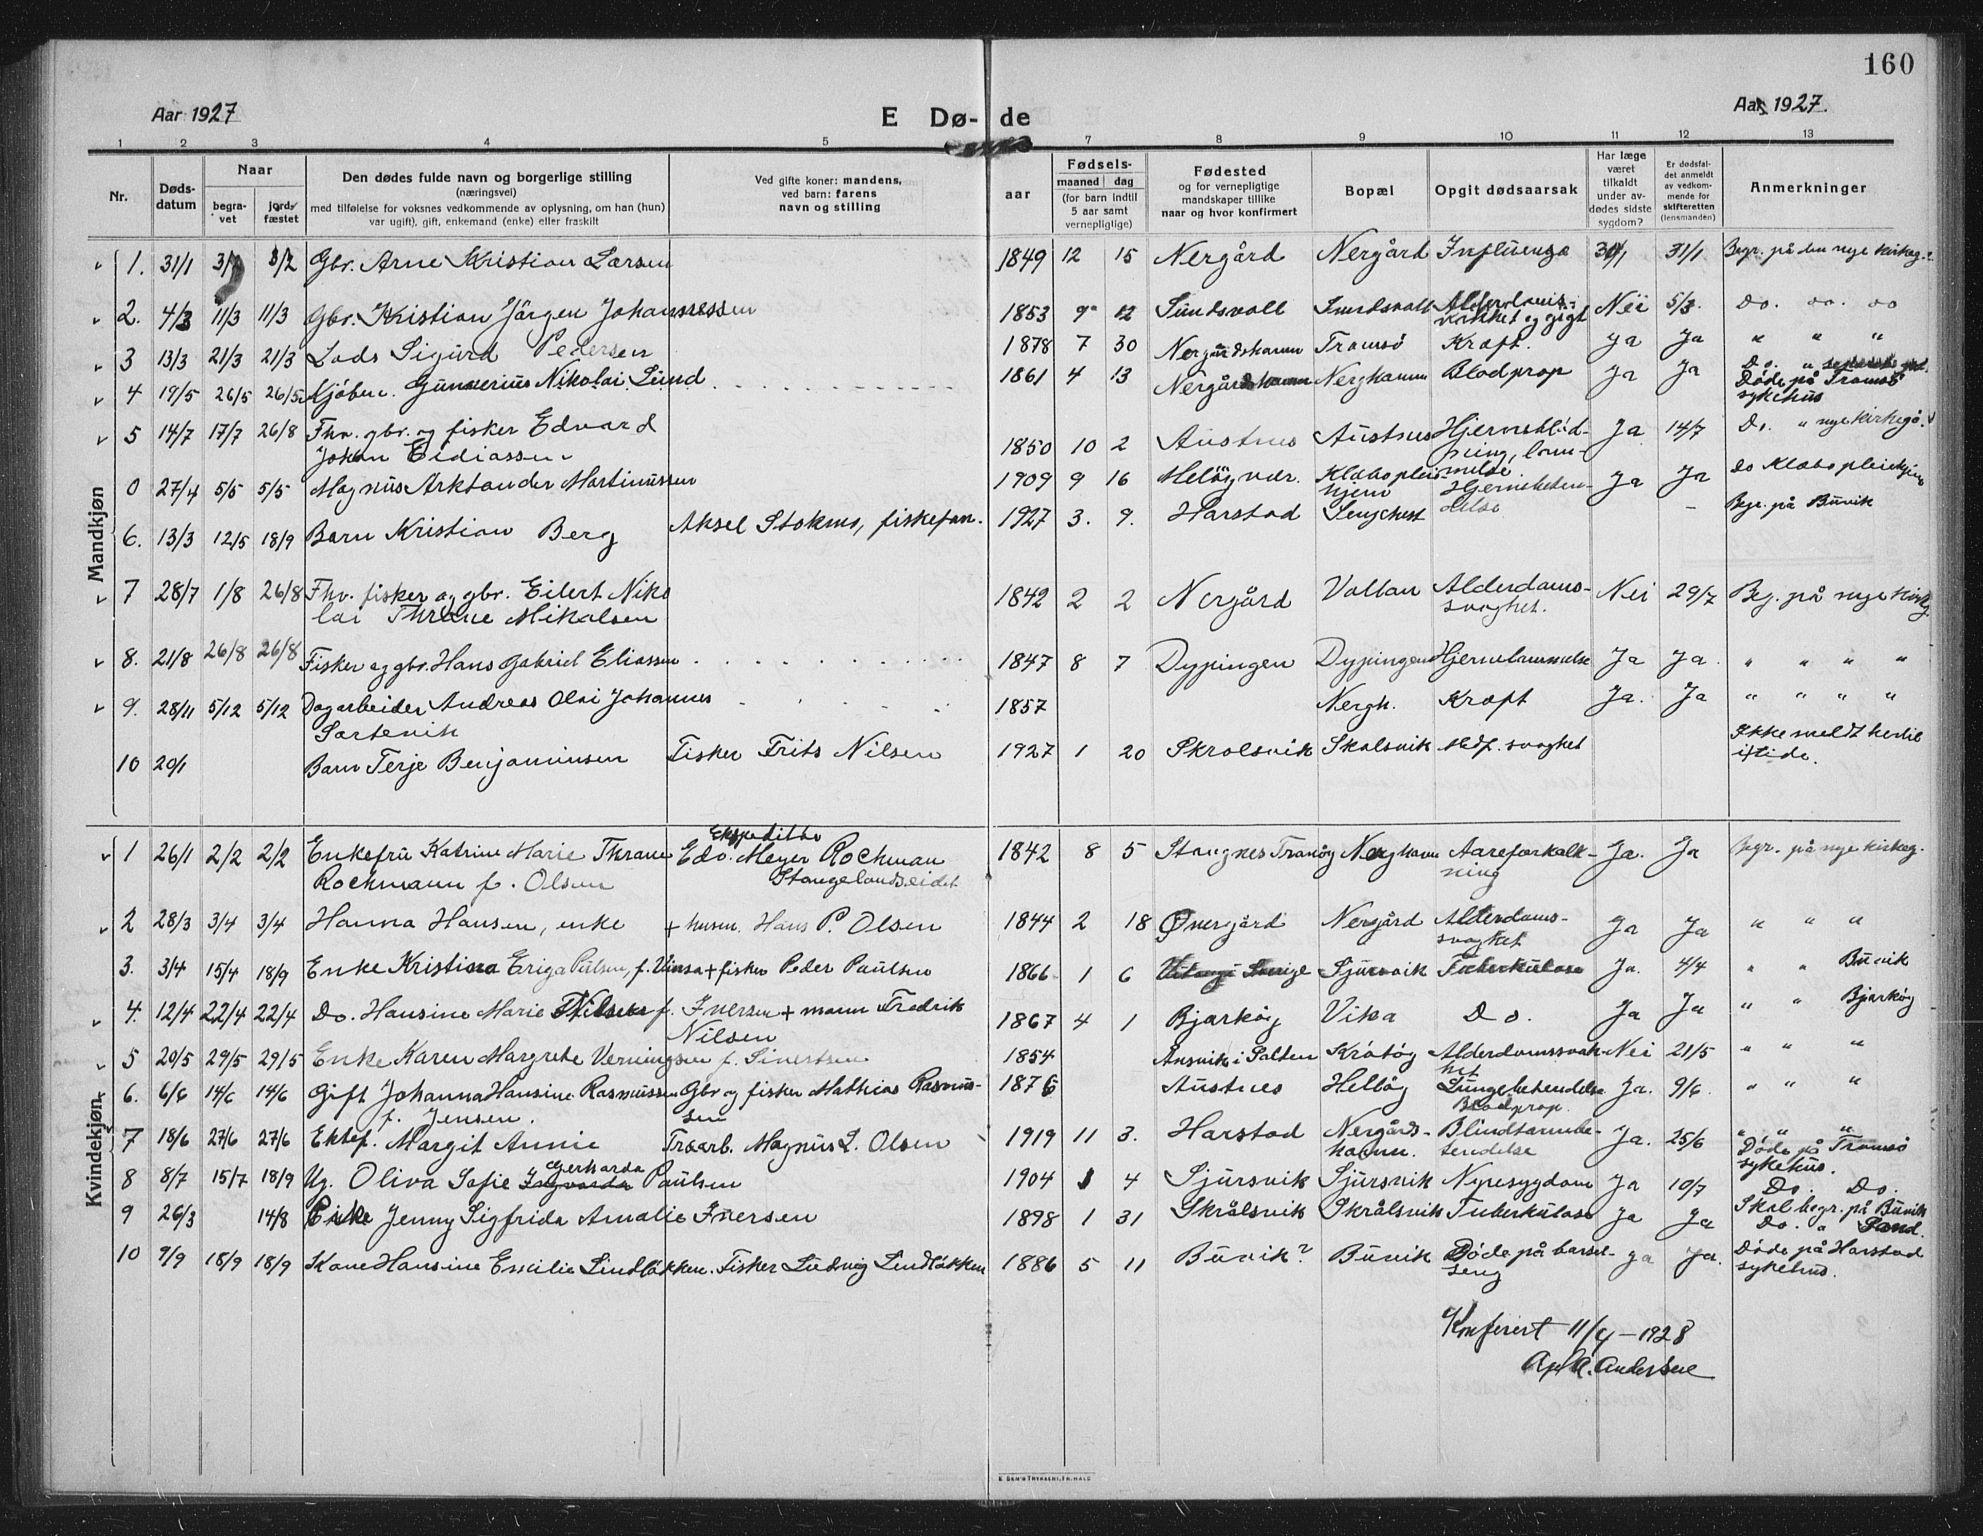 160
Aar 1927
E Dø-de
Aar 1927.
1 2 3 4 5 7 8 9 10 11 12 13
Nr.
Døds-datum
Naar
begra-vet
jord-fæstet
Den dødes fulde navn og borgerlige stilling
(næringsvei)
med tilføielse for voksnes vedkommende av oplysning, om han (hun)
var ugift), gift, enkemand (enke) eller fraskilt
Ved gifte koner: mandens,
ved barn: farens
navn og stilling
aar
Fødsels-
maaned dag
(for barn indtil
5 aar samt
vernepligtige)
Fødested
og for vernepligtige
mandskaper tillike
naar og hvor konfirmert
Bopæl
Opgit dødsaarsak
Har læge
været
tilkaldt
under av-
dødes sidste
sygdom?
Er dødsfal-
det anmeldt
av vedkom-
mende for
skifteretten
(lensmanden)
Anmerkninger
Mandkjøn
1. 31/1 3/2 Gbr. Arne Kristian Larsen 1849 12 15 Nergård Nergård Influensa 30/1 31/1 Begr. på den nye kirkeg.
2. 4/3 11/3 11/3 Gbr. Kristian Jörgen Johannessen 1853 9 12 Sundsvoll Sundsvoll Alderdoms- Nei 5/3 Do. oo. oo
3 13/3 21/3 21/3 Lods Sigurd Pedersen 1878 7 30 Nergårdshamn Tromsö Kræft. Ja Ja " " "
4 19/5 26/5 26/5 Kjöbm. Gunnerius Nikolai Lund 1861 4 13 Nergårdshamn Nerghamn Blodprop Ja Ja Do. "
Döde på Tromsö
sykehus
5 14/7 17/7 26/8 Fhv. gbr. og fisker Edvard
Johan Ediassen 1850 10 2 Austnes Austnes Hjerneblöd-
ning, Ja 14/7 Do. " nye kirkegå.
0 27/4 5/5 5/5 Magnus Arktander Martinussen 1909 9 16 Meløyvær. Klæbo pleie
hjem Hjernebeten-
delse Ja Ja Do Klæbo pleiehjem
6. 13/3 12/5 18/9 Barn Kristian Berg Aksel Stoknes, fiskefan. 1927 3. 9. Harstad Senjehest - Begr. på Buvik
7 28/7 1/8 26/8 Fhv. fisker og gbr. Eilert Niko
lai Thrane Mikalsen 1842 2 2 Nergård Vollan Alderdoms-
svaghet. Nei 29/7 Beg. på nye kirkg.
8. 21/8 26/8 26/8 Fisker og gbr. Hans Gabriel Eliassen 1847 8 7 Dypingen Dypingen Hjernelammelse Ja Ja. " " " "
9. 28/11 5/12 5/12 Dagarbeider Andreas Olai Johannes
Sortevik 1857 Nergh. Kræft Ja. Ja " " " "
10 20/1 Barn Terje Benjaminsen Fisker Frits Nilsen 1927 1 20 Skrolsvik Skolsvik Medf. svaghet Ikke meldt hertil
i tide.
Kvindekjøn
1 26/1 2/2 2/2 Enkefru Katrine Marie Thrane
Rochmann f. Olsen Ekspeditör
Edv. Meyer Rochman
Stangelandseidet 1842 8 5 Stangnes Tranöy Nerghavn Aareforkalk-
ning Ja. Ja Begr. på nye kirkeg.
2 28/3 3/4 3/4 Hanna Hansen, enke + husm. Hans P. Olsen 1844 2 18 Övergård Nergård Alderdoms-
svaghet Ja Ja " " "
3. 3/4 15/4 18/9 Enke Kristina Eriga Pålsen, f. + fisker Peder Paulsen 1866 1 6 Sverige Sjursvik Tuberkulose Ja. 4/4 " " Buvik
4. 12/4 22/4 22/4 Do. Hansine Marie Nilsen f. Iversen + mann Fredrik
Nilsen 1867 4 1 Bjarköy Vika Do. Ja Ja " " Bjarköy
5 20/5 29/5 29/5 Enke Karen Margrete Verningsen f. Sivertsen 1854 Ansvik i Salten Kråtöy Alderdomssvak-
het Nei 21/5 " " "
6. 6/6 14/6 14/6 Gift Johanna Hansine Rasmussen
f. Jensen. Gbr og fisker Mathias Rasmus-
sen 1876 Austnes Hellöy Lungebetendelse
Blodprop. Ja. 9/6. " " "
7 18/6 27/6 27/6 Ektef. Margit Annie Træarb. Magnus L. Olsen 1919 11 3. Harstad Nergårds-
hamn. Blindtarmbe-
tendelse Ja. 25/6 " " "
Döde på Tromsö
sykehus.
8 8/7 15/7 18/9 Ug. Oliva Sofie Ingvarda Gerharda Paulsen 1904 4 Sjursvik Sjursvik Nyresygdom Ja 10/7 Do. Do.
9 26/3 14/8 Enke Jenny Sigfrida Amalie Iversen 1898 1 31 Skrålsvik Skrålsvik Tuberkulose Ja Ja Skal begr. på Buvik
Do. " Sand.
10 9/9 18/9 18/9 Kone Hansine Emilie Lindbäkken. Fisker Ludvig Lindbäkken 1886 5 11 Buvik? Buvik Döde på barsel-
seng Ja Ja. Döde på Harstad
sykehus.
Konferert 11/4-1928
Andersen